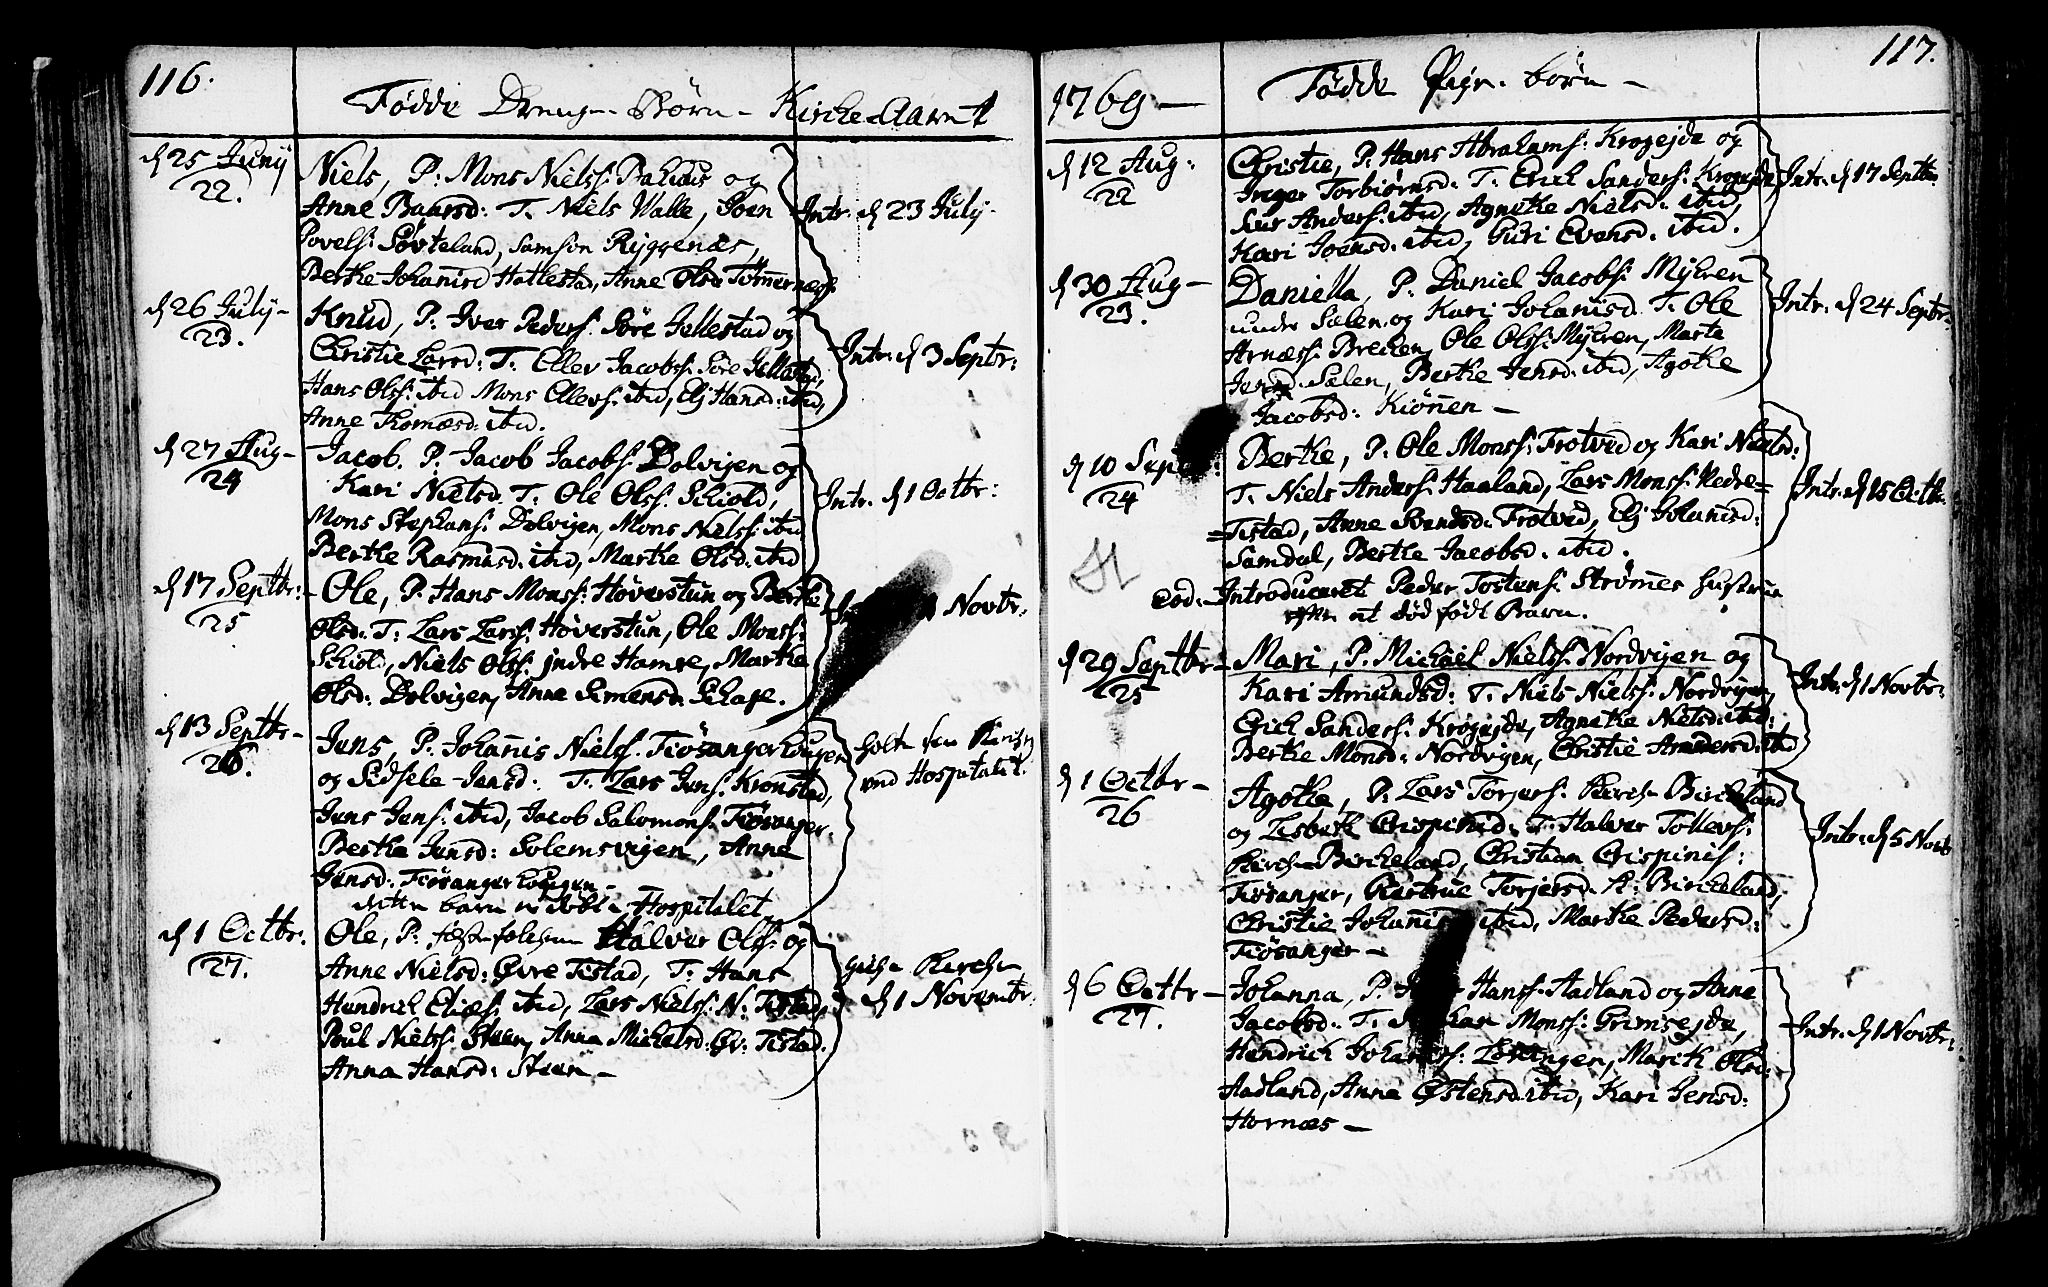 116.
Fødde Drenge-Børn - Kirke-Aaret
d 25 Junij
22.
Niels, P: Mons Nielss: Bahuus og
Anne Baarsd: T. Niels Walle, Joen
Povelss: Søvteland, Samson Ryggenæs,
Berthe Johannisd Hatlestad, Anne Olsd Tømmernæss:
Intr. d 23 July-
d 26 July-
23.
Knud, P: Iver Peders: Søre Jellestad og
Christie Larsd: T: Ellev Jacobss: Søre Jellestad,
Hans Olss: ibid Mons Ellevs: ibid, Elj Hansd: ibid,
Anne Thomæsd: ibid.
Intr: d 3 Septbr:
d 27 Aug-
24
Jacob. P: Jacob Jacobs: Dolvigen og
Kari Nielsd. T: Ole Olss: Schiold,
Mons Stephans: Dolvigen, Mons Nielss: ibid
Berthe Rasmusd: ibid, Marthe Olsd: ibid
Intr. d 1 Octbr:
d 17 Septbr:-
25
Ole, P: Hans Monss: Høverstun og Berthe
Olsd: T: Lars Larss: Høverstun, Ole Monss:
Schiold, Niels Olss: indre Hamre, Marthe
Olsd: Dolvigen, Anne Simensd: Schage.
Novbr:
d 13 Septbr-
26.
Jens, P: Johannis Nielss: Tiøsangerhougen
og Sidsele Jensd: T: Lars Jens: Kronstad,
Jens Jens: ibid, Jacob Salomons: Tiøsanger.
Berthe Jensd: Solemsvigen, Anne
Jensd: Tiøsangerhougen-
dette barn er døbt i Hospitalet
holte sin
ved Hospitalet.
d 1 Octbr.
27.
Ole, P: Halver Olss: og
Anne Nielsd: Øvre Tistad, T: Hans
Hendrich Eliæs: ibid, Lars Nielss: N: Tistad,
Poul Nielss: Steen, Anna Michelsd: Øv: Tistad.
Anna Hansd: Steen-
Kirche
d 1 Novembr:
1769-
Fødde Pige-børn-
117.
d 12 Aug:
22
Christie, P: Hans Abrahams: Krogejde og
Inger Torbiørnsd: T: Erich Sanders: Krogejde,
Siur Anders: ibid, Agnethe Nielsd: ibid,
Kari Joensd: ibid, Guri Evensd. ibid.
Intr. d 17 Septbr.
d 30 Aug-
23.
Daniella, P: Daniel Jacobs: Myhren
under Sælen og Kari Johannisd. T: Ole
Arnæss: Brechen, Ole Olss: Myhren, Marte
Jensd: Sælen, Berthe Jensd: ibid, Agothe
Jacobsd: Kiønnen-
Intr. d 24 Septbr:
d 10 Septbr:
24
Berthe, P: Ole Monss: Trotved og Kari Nielsd:
T. Niels Anders: Haaland, Lars Monss: Nedre=
=Tistad, Anne Svendsd: Trotved, Elj Johannisd:
Samdal, Berthe Jacobsd. ibid.
Intr. d 15 Octb.
eod:-Introduceret Peder Tostens: Strømnes Hustrue
efter et død født Barn.
d 29 Septbr:-
25
Mari, P. Michael Nielss: Nordvigen og
Kari Amundsd: T. Niels Nielss: Nordvigen,
Erich Sanders: Krogejde, Agnethe Nielsd: ibid:
Berthe Monsd: Nordvigen, Christie Andersd: ibid
Intr. d 1 Novbr:
d 1 Octbr-
26
Agothe, P: Lars Torjers: Kirche Bircheland
og Lisbeth Crispinid: T: Halver Tollevs:
Kirche-Bircheland, Christian Crispinis:
Tiøsanger, Giertrue Torjersd. K: Bircheland,
Christie Johannisd ibid, Marthe Pedersd:
Tiøsanger-
Intr: d 5 Novb
d 6 Octbr-
27.
Johanna, P. Hanss: Aadland og Anne
Jacobsd: T. Monss: Grimsejde,
Hendrich Johannis: Løvaagen, Marith Olsd:
Aadland, Anne Østensd: ibid, Kari Jensd:
Hornæs-
Intr. d 1 Novbr: